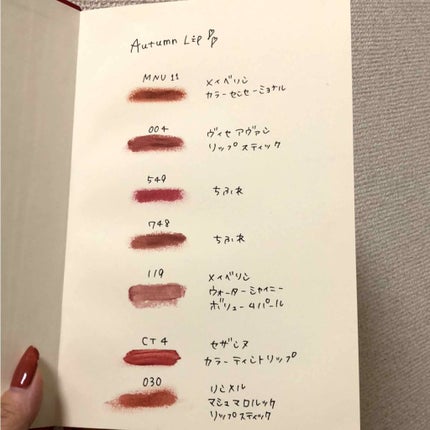 Autumn Lip
MNU 11
メイベリン
カラーセンセーショナル
004
ヴィセ アヴァン
リップスティック
549
ちふれ
748
ちふれ
119
メイベリン
ウォーターシャイニー
ボリュームパール
CT4
セザンヌ
カラーティントリップ
030
リンメル
マシュマロルック
リップスティック